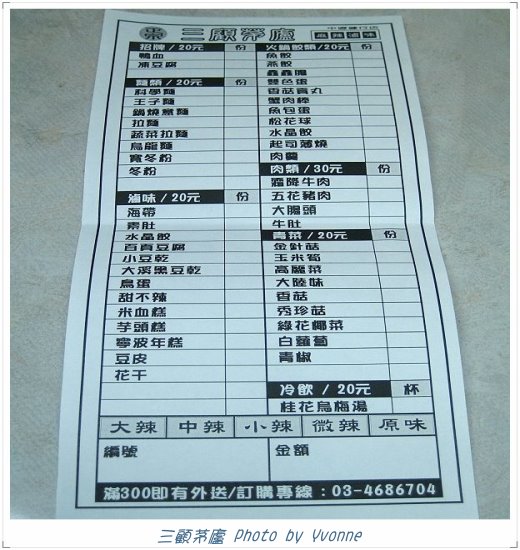 三顧茅廬
中壢健行店
麻辣滷味
招牌/20元 份
鴨血
凍豆腐
麵類/20元 份
科學麵
王子麵
鍋燒意麵
拉麵
蔬菜拉麵
烏龍麵
寬冬粉
冬粉
滷味/20元 份
海帶
素肚
水晶餃
百頁豆腐
小豆乾
大溪黑豆乾
鳥蛋
甜不辣
米血糕
芋頭糕
寧波年糕
豆皮
花干
火鍋餃類/20元 份
魚餃
燕餃
蟲蟲腸
雙色蛋
香菇貢丸
蟹肉棒
魚包蛋
松花球
水晶餃
起司薄燒
肉羹
肉類/30元 份
霜降牛肉
五花豬肉
大腸頭
牛肚
青菜/20元 份
金針菇
玉米筍
高麗菜
大陸妹
香菇
秀珍菇
綠花椰菜
白蘿蔔
青椒
冷飲/20元 杯
桂花烏梅湯
大辣 中辣 小辣 微辣 原味
編號 金額
滿300即有外送/訂購專線:03-4686704
三顧茅廬 Photo by Yvonne